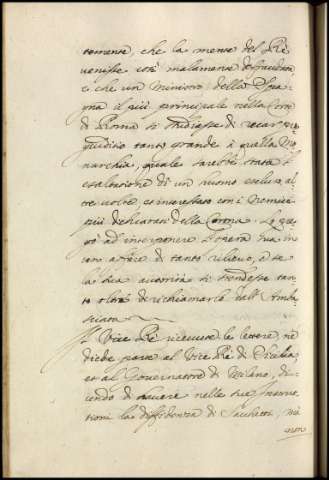 tamente, che la mente del Rè
venisse così malamente defraudata
e che un Ministro della Spa:
gna il più principale nella Corte
di Roma si studiasse di recar pre:
giuditio tanto grande à quella Mo:
narchia, quale sarebbe stata l'
esaltatione di un huomo escluso al:
tre volte, et interessato con i Nemici
più dichiarati della Corona. Lo pre:
gò ad interporre l'opera sua in
un affare di tanto rilievo, e se
la sua autorità si stendesse tan:
to oltre di richiamarlo dall' Amba:
sciata
Il Vice Rè ricevute le lettere, ne
diede parte al Vice Rè di Sicilia,
et al Governatore di Milano, di:
cendo di havere nelle sue Instrut:
tioni la diffidenza di Sacchetti, mà
non